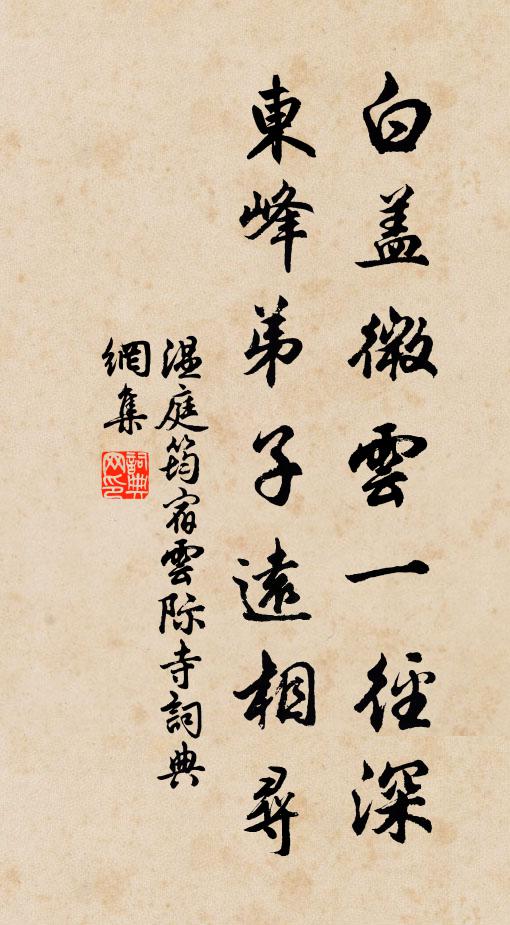 白盖微雲一徑深
東峰弟子遠相尋
温庭筠宿雲际寺詞典
網集
詞典
网印